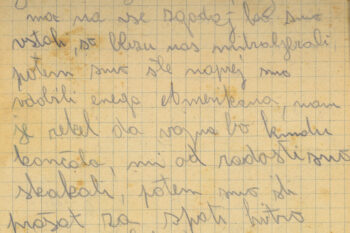 mor na vse zgodaj ko smo
vstali, so blizu nas mitraljezirali
potem smo šle naprej smo
vdobili enega Amerikana, nam
je rekel da vojna bo kmalu
končala, mi od radosti smo
skakali, potem smo šli
prašat za spati hitro